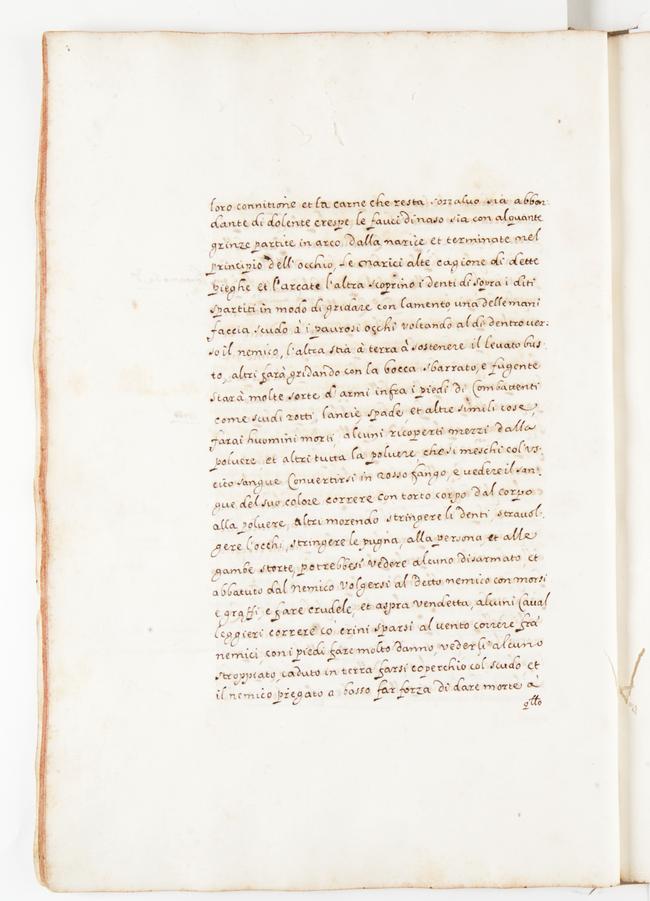 loro connitione et la carne che resta sopra luo sia abbon-
dante di dolente crespe, le fauci di naso sia con alquante
grinze partite in arco dalla narice et terminate nel
principio dell'occhio, Le Narici alte cagione di dette
pieghe et l'arcate l'altra scoprino i denti di sopra i diti
spartiti in modo di gridare con lamento una delle mani
faccia scudo à i paurosi occhi voltando al di dentro ver-
so il nemico, l'altra stià à terra à sostenere il levato bus-
to, altri farà gridando con la bocca sbarrato, e fugente
starà molte sorte d'armi infra i piedi di Combattenti
come scudi rotti, lancie spade et altre simili cose,
farai huomini morti, alcuni ricoperti mezzi dalla
poluere et altri tutta la poluere, che si meschi col us-
cito sangue Convertirsi in rosso fango, e vedere il san-
gue del suo colore correre con torto corpo dal corpo
alla poluere, altri morendo stringere li denti, stravol-
gere l'occhi, stringere le pugna, alla persona et alle
gambe storte, potrebbesi vedere alcuno disarmato et
abbatuto dal Nemico volgersi al detto nemico con morsi
e graffi e fare crudele, et aspra vendetta, alcuni Caval
leggieri correre co' crini sparsi al vento correre fra
nemici, con i piedi fare molto danno, vedersi alcuno
stroppiato, caduto in terra farsi coperchio col scudo et
il nemico pregato a basso far forza di dare morte à
q̃llo